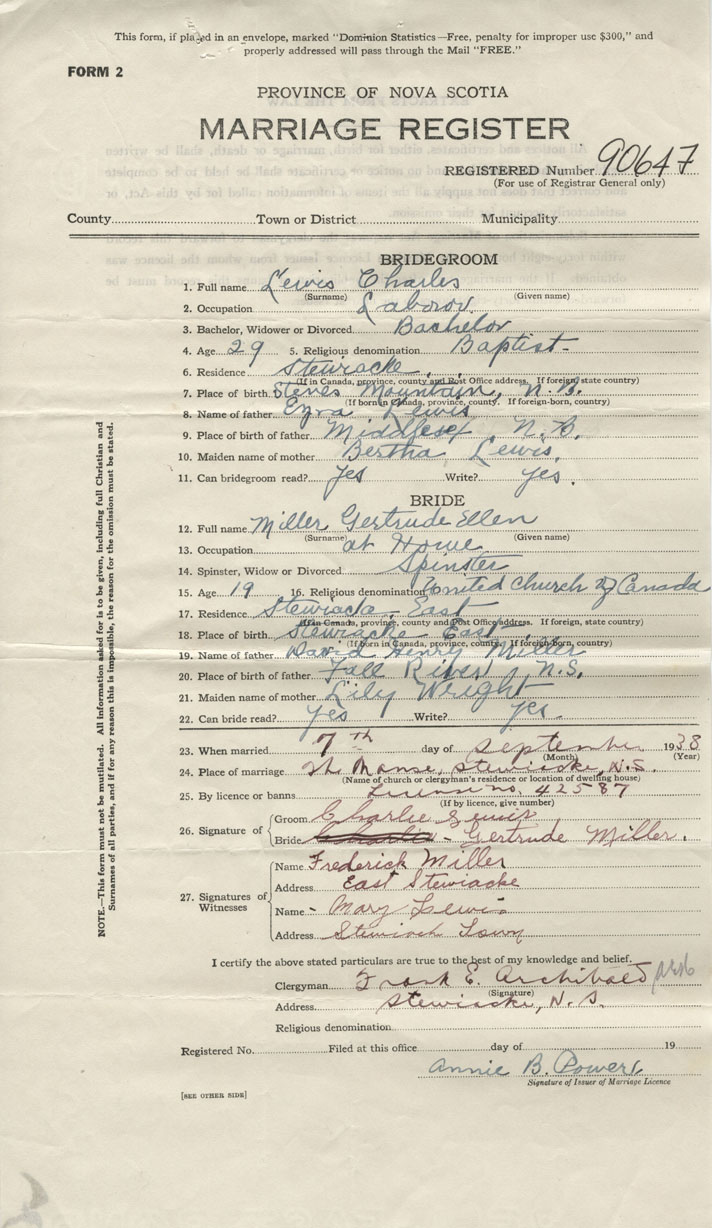 This form, if placed in an envelope, marked "Dominion Statistics—Free, penalty for improper use $300," and
properly addressed will pass through the Mail "FREE."
FORM 2
PROVINCE OF NOVA SCOTIA
MARRIAGE REGISTER
REGISTERED Number 90647
(For use of Registrar General only)
County Town or District Municipality
BRIDEGROOM
1. Full name Lewis Charles
(Surname) (Given name)
2. Occupation Laboror.
3. Bachelor, Widower or Divorced Bachelor
4. Age 29 5. Religious denomination Baptist
6. Residence Stewiacke,
(If in Canada, province, county and Post Office address. If foreign, state country)
7. Place of birth Steves Mountain, N.B.
(If born in Canada, province, county. If foreign-born, country)
8. Name of father Ezra Lewis
9. Place of birth of father Middlesex, N.B.
10. Maiden name of mother Bertha Lewis,
11. Can bridegroom read? yes Write? yes.
BRIDE
12. Full name Miller Gertrude Ellen
(Surname) (Given name)
13. Occupation at Home
14. Spinster, Widow or Divorced Spinster
15. Age 19 16. Religious denomination United Church of Canada
17. Residence Stewiacke East
(If in Canada, province, county and Post Office address. If foreign, state country)
18. Place of birth Stewiacke East
(If born in Canada, province, county. If foreign-born, country)
19. Name of father David Henry Miller
20. Place of birth of father Fall River, N.S.
21. Maiden name of mother Lily Wright
22. Can bride read? yes Write? yes.
23. When married 7th day of September 1938
(Month) (Year)
24. Place of marriage The Manse, Stewiacke, N.S.
(Name of church or clergyman's residence or location of dwelling house)
25. By licence or banns License no. 42587
(If by licence, give number)
26. Signature of
Groom Charlie Lewis
Bride Charlie - Gertrude Miller.
27. Signatures of
Witnesses
Name Frederick Miller
Address East Stewiacke
Name - Mary Lewis
Address Stewiack Town
I certify the above stated particulars are true to the best of my knowledge and belief.
Clergyman Frank E. Archibald
(Signature)
Address Stewiacke, N.S.
Religious denomination
Registered No. Filed at this office day of 19
Annie B. Powers
Signature of Issuer of Marriage Licence
[SEE OTHER SIDE]
NOTE.—This form must not be mutilated. All information asked for is to be given, including full Christian and
Surnames of all parties, and if for any reason this is impossible, the reason for the omission must be stated.